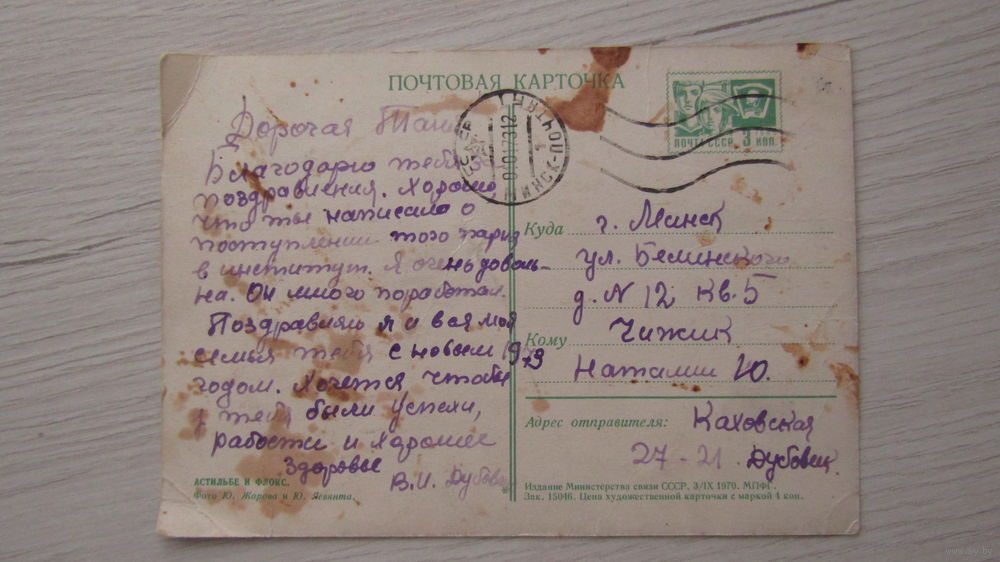 ПОЧТОВАЯ КАРТОЧКА
Дорогая Таня
Благодарю тебя
поздравления. Хорошо,
что ты написала о
поступлении того парня
в институт. Я очень доволь-
на. Он много поработал.
Поздравляем я и вся моя
семья тебя с новым 1973
годом. Хочется чтобы
у тебя были успехи,
радости и хорошее
здоровье
В.И. Дубовец
АСТИЛЬБЕ И ФЛОКС.
Фото Ю. Жорова и Ю. Левянта.
МИНСК-ПОЧТАМТ
ПОЧТА СССР 3 КОП.
Куда г. Минск
ул. Белинского
д. N 12 кв. 5
Кому Чижик
Наталии Ю.
Адрес отправителя: Каховская
27-21 Дубовец
Издание Министерства связи СССР. 3/IX 1970. МПФГ.
Зак. 15046. Цена художественной карточки с маркой 4 коп.
www.ay.by